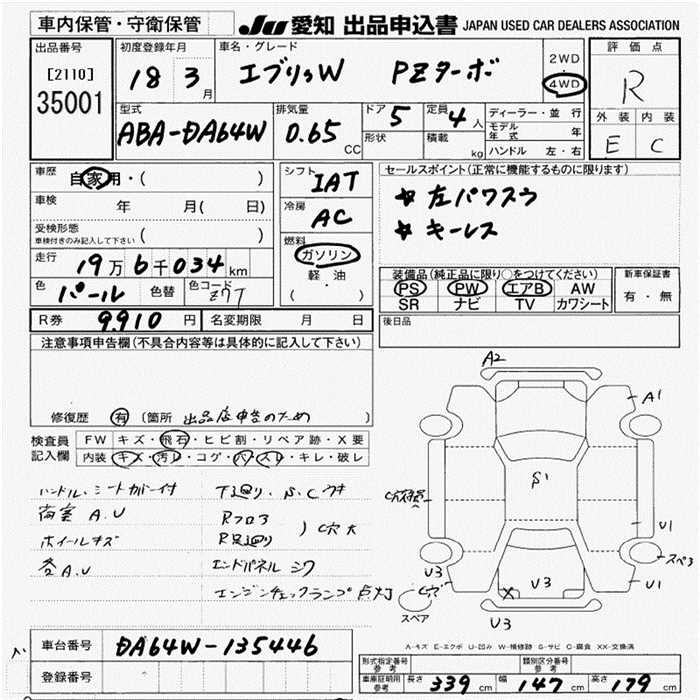 車内保管・守衛保管
JU 愛知 出品申込書 JAPAN USED CAR DEALERS ASSOCIATION
出品番号
[2110]
35001
初度登録年月
18 3月
車名・グレード
エブリィW PZターボ
2WD
4WD
評価点
R
外装 内装
E C
型式
ABA-DA64W
排気量
0.65 CC
ドア 5
形状
定員 4人
積載 kg
ディーラー・並行
モデル年式 年
ハンドル 左・右
車歴
自家用・( )
車検 年 月( 日)
受検形態
車検付きのみ記入して下さい ( )
走行
19万6千034km
色
パール
色替
色コード
Z7T
シフト
IAT
冷房
AC
燃料
ガソリン
軽油
( )
セールスポイント(正常に機能するものに限ります)
☆左パワスラ
☆キーレス
装備品(純正品に限り○をつけてください)
PS PW エアB AW
SR ナビ TV カワシート
新車保証書
有・無
R券 9.910円
名変期限 月 日
後日品
注意事項申告欄(不具合内容等は具体的に記入して下さい)
修復歴 有 (箇所 出品店申告のため
検査員
記入欄
FW キズ・飛石・ヒビ割・リペア跡・X要
内装 キズ・汚レ・コゲ・ハ・スレ・キレ・破レ
ハンドル・シートカバー付
荷室 A.U
ホイールキズ
各A.U
下廻り・S.Cウキ
Rフロア
R足廻り
)C穴大
エンドパネル シワ
エンジンチェックランプ点灯
A2
A1
S1
U1
スペ3
U1
U3
C穴
X
U3
U3
スペア
A-キズ E-エクボ U-凹み W-補修跡 S-サビ C-腐食 XX-交換済
車台番号 DA64W-135446
登録番号
形式指定番号
参考
類別区分番号
参考
車庫証明用
参考
長さ 339cm
幅 147cm
高さ 179cm